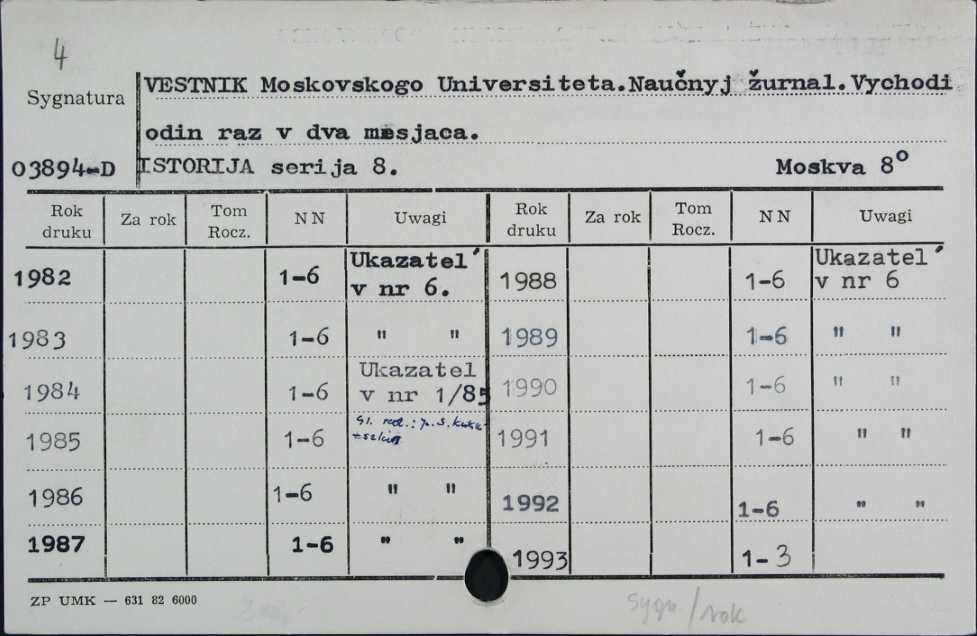 4
Sygnatura
VESTNIK Moskovskogo Universiteta.Naučnyj žurnal.Vychodi
odin raz v dva mesjaca.
03894-D ISTORIJA serija 8. Moskva 8°
Rok druku Za rok Tom Rocz. NN Uwagi Rok druku Za rok Tom Rocz. NN Uwagi
1982 1-6 Ukazatel´ v nr 6. 1988 1-6 Ukazatel´ v nr 6
1983 1-6 " " 1989 1-6 " "
1984 1-6 Ukazatel v nr 1/85 1990 1-6 " "
1985 1-6 Gl. red.: 1991 1-6 " "
1986 1-6 " " 1992 1-6 " "
1987 1-6 " " 1993 1-3
ZP UMK — 631 82 6000
sygn/rok